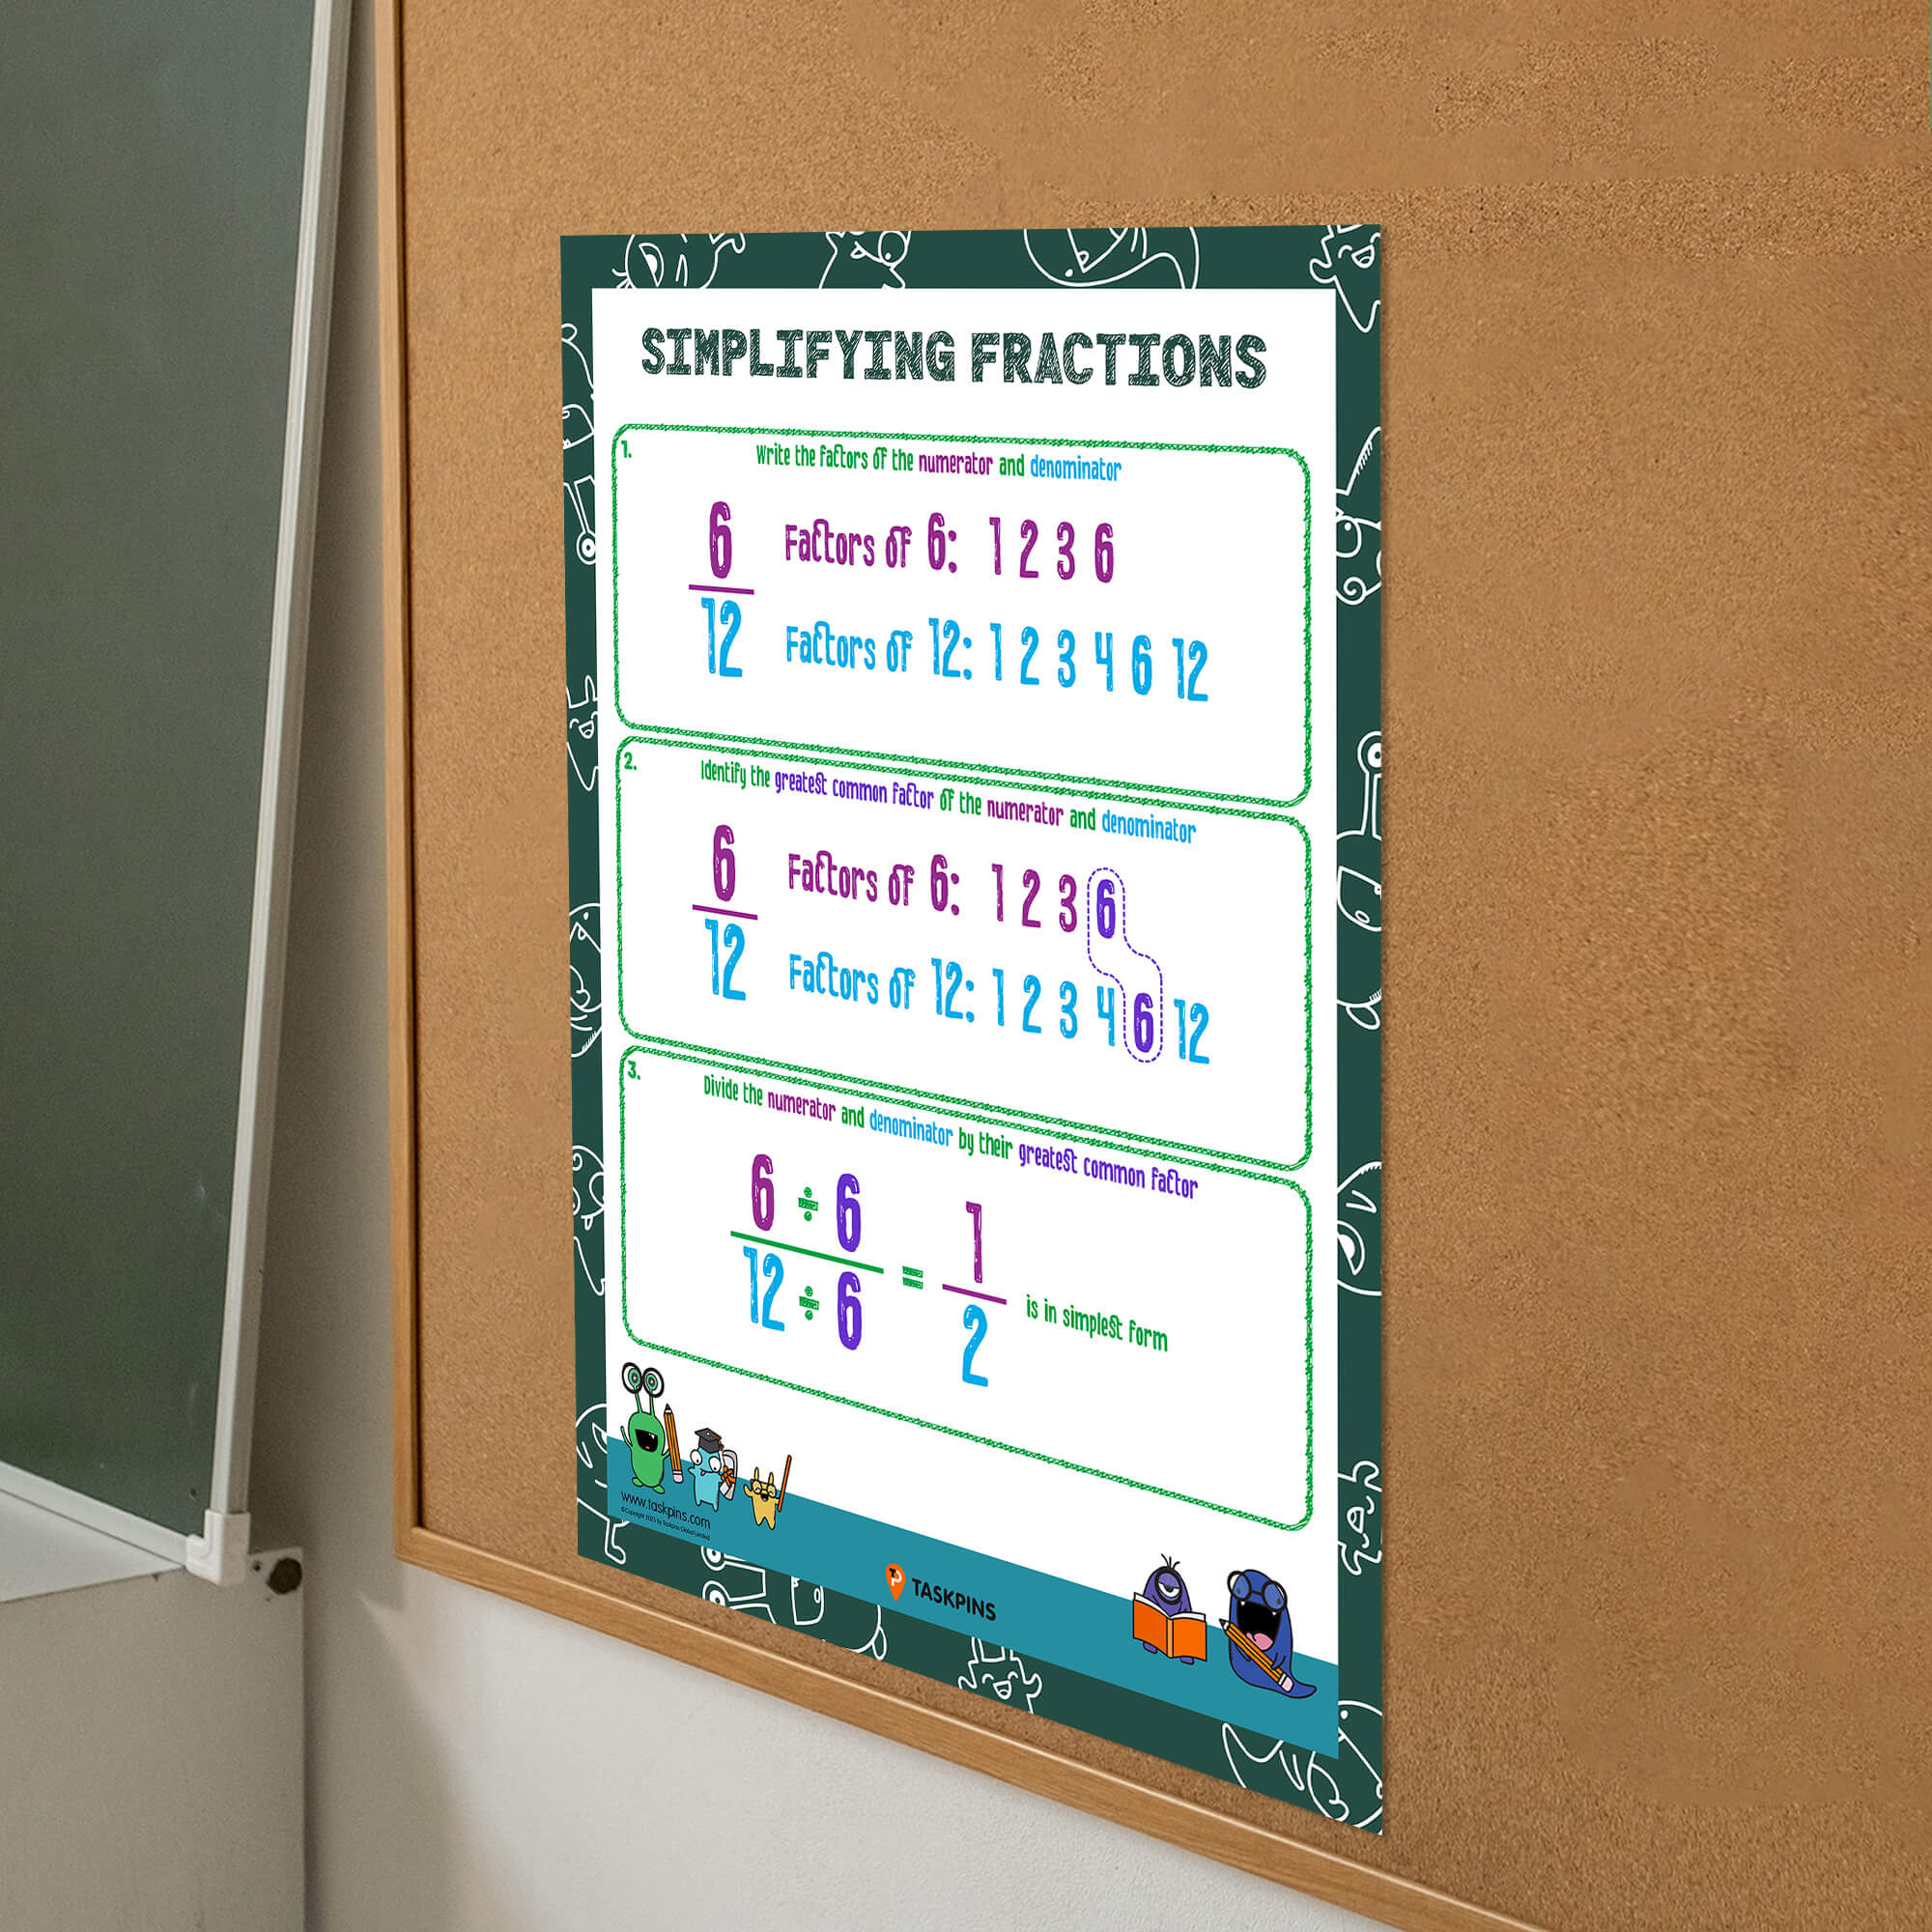 SIMPLIFYING FRACTIONS
1.
Write the factors of the numerator and denominator
6
12
Factors of 6: 1 2 3 6
Factors of 12: 1 2 3 4 6 12
2.
Identify the greatest common factor of the numerator and denominator
6
12
Factors of 6: 1 2 3 6
Factors of 12: 1 2 3 4 6 12
3.
Divide the numerator and denominator by their greatest common factor
6 ÷ 6
12 ÷ 6
=
1
2
is in simplest form
www.taskpins.com
©Copyright 2023 by Taskpins Global Limited
TASKPINS